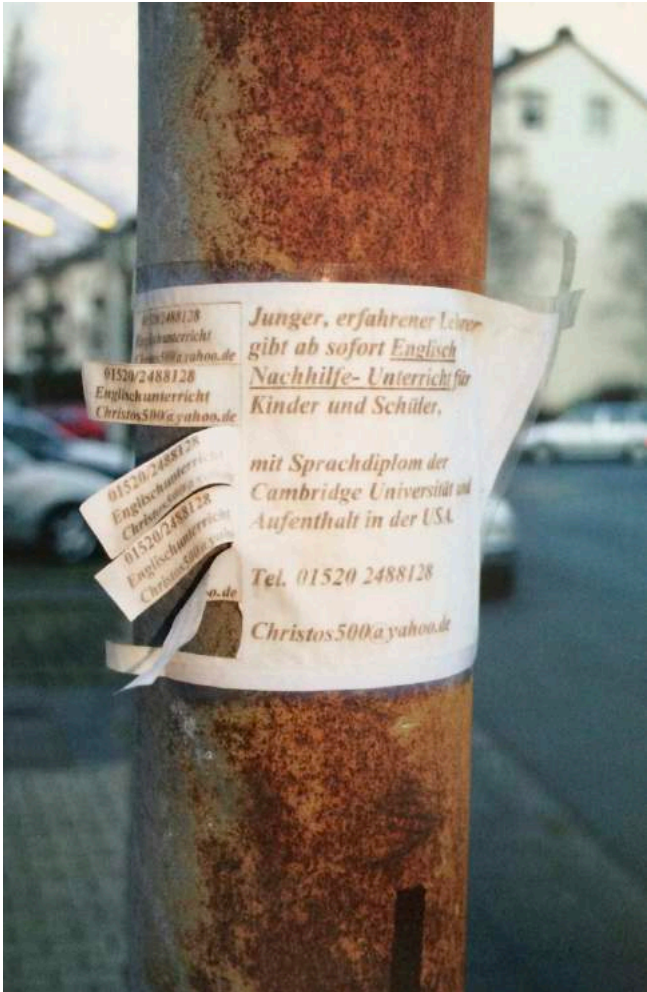 Junger, erfahrener Lehrer
gibt ab sofort Englisch
Nachhilfe- Unterricht für
Kinder und Schüler,
mit Sprachdiplom der
Cambridge Universität und
Aufenthalt in der USA.
Tel. 01520 2488128
Christos500@yahoo.de
01520/2488128
Englischunterricht
Christos500@yahoo.de
01520/2488128
Englischunterricht
Christos500@yahoo.de
01520/2488128
Englischunterricht
Christos500@yahoo
01520/2488128
Englischunterricht
Christos500@yahoo
oo.de